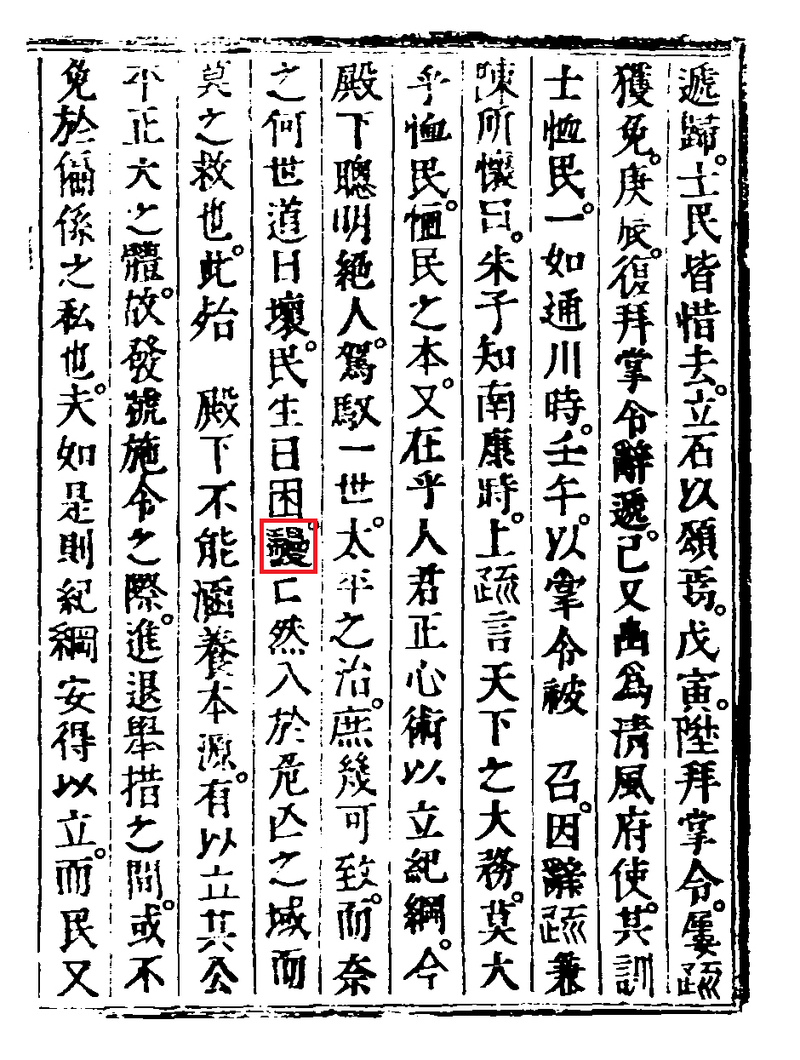 遞歸士民皆惜去立石以頌焉戊寅陞拜掌令屢疏
獲免庚辰復拜掌令辭遞己又出爲清風府使其訓
士恤民一如通川時壬午以掌令被 召因辭疏兼
陳所懷曰朱子知南康時上疏言天下之大務莫大
乎恤民恤民之本又在乎人君正心術以立紀綱今
殿下聰明絕人駕馭一世太平之治庶幾可致而奈
之何世道日壞民生日困 匕然入於危亾之域而
莫之救也此殆 殿下不能涵養本源有以立其公
平正大之體故發號施令之際進退舉措之間或不
免於偏係之私也夫如是則紀綱安得以立而民又